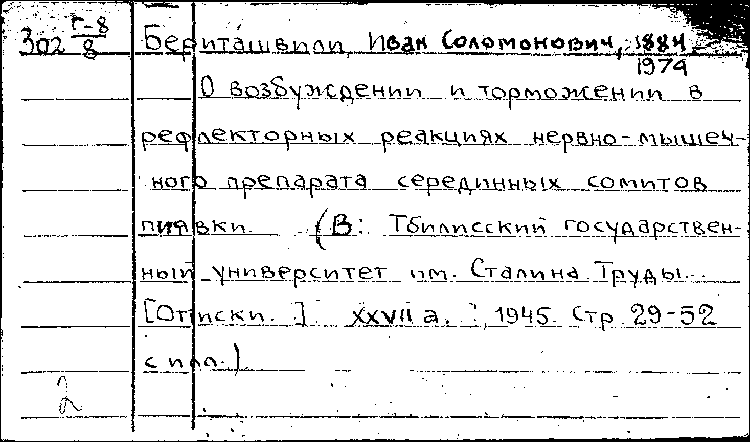 302 Г-8/8 Бериташвили, Иван Соломонович, 1884-
1974
О возбуждении и торможении в
рефлекторных реакциях нервно-мышеч-
ного препарата серединных сомитов
пиявки. (В: Тбилисский государствен-
ный университет им. Сталина Труды...
[Оттиски.] XXVII а. , 1945. Стр 29-52
с илл.)
2